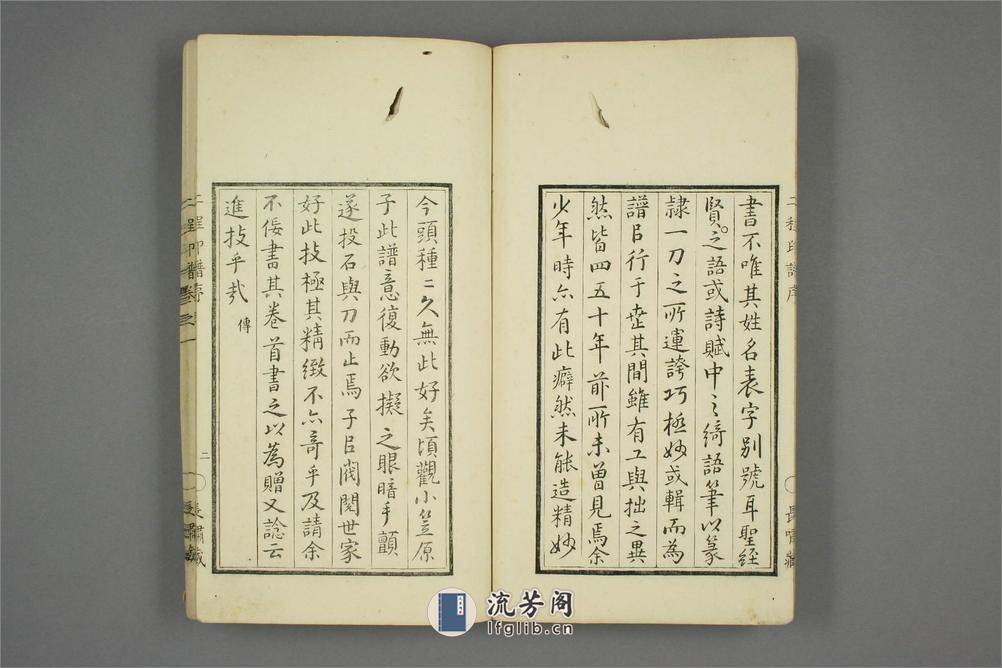 書不唯其姓名表字別號耳聖經
賢之語或詩賦中之綺語筆以篆
隷一刀之所運誇巧極妙或輯而為
譜㠯行于世其間雖有工與拙之異
然皆四五十年前所未曾見焉余
少年時亦有此癖然未能造精妙
今頭種〻久無此好矣頃觀小笠原
子此譜意復動欲擬之眼暗手顫
遂投石與刀而止焉子㠯閥閱世家
好此技極其精緻不亦奇乎及請余
不佞書其卷首書之以為贈又諗云
進技乎哉
傳
二程印譜序
二
長嘯藏
流芳阁
lfglib.cn